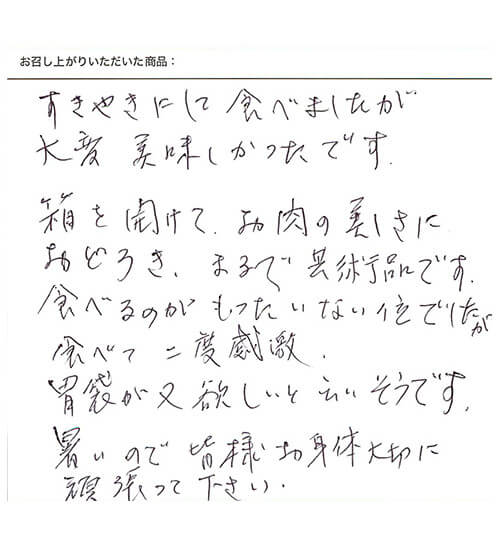 お召し上がりいただいた商品：
すきやきにして食べましたが
大変 美味しかったです.
箱を開けて、お肉の美しさに
おどろき、まるで芸術品です.
食べるのがもったいない位でしたが
食べて 二度感激.
胃袋が又欲しいと云いそうです.
暑いので皆様お身体大切に
頑張って下さい.